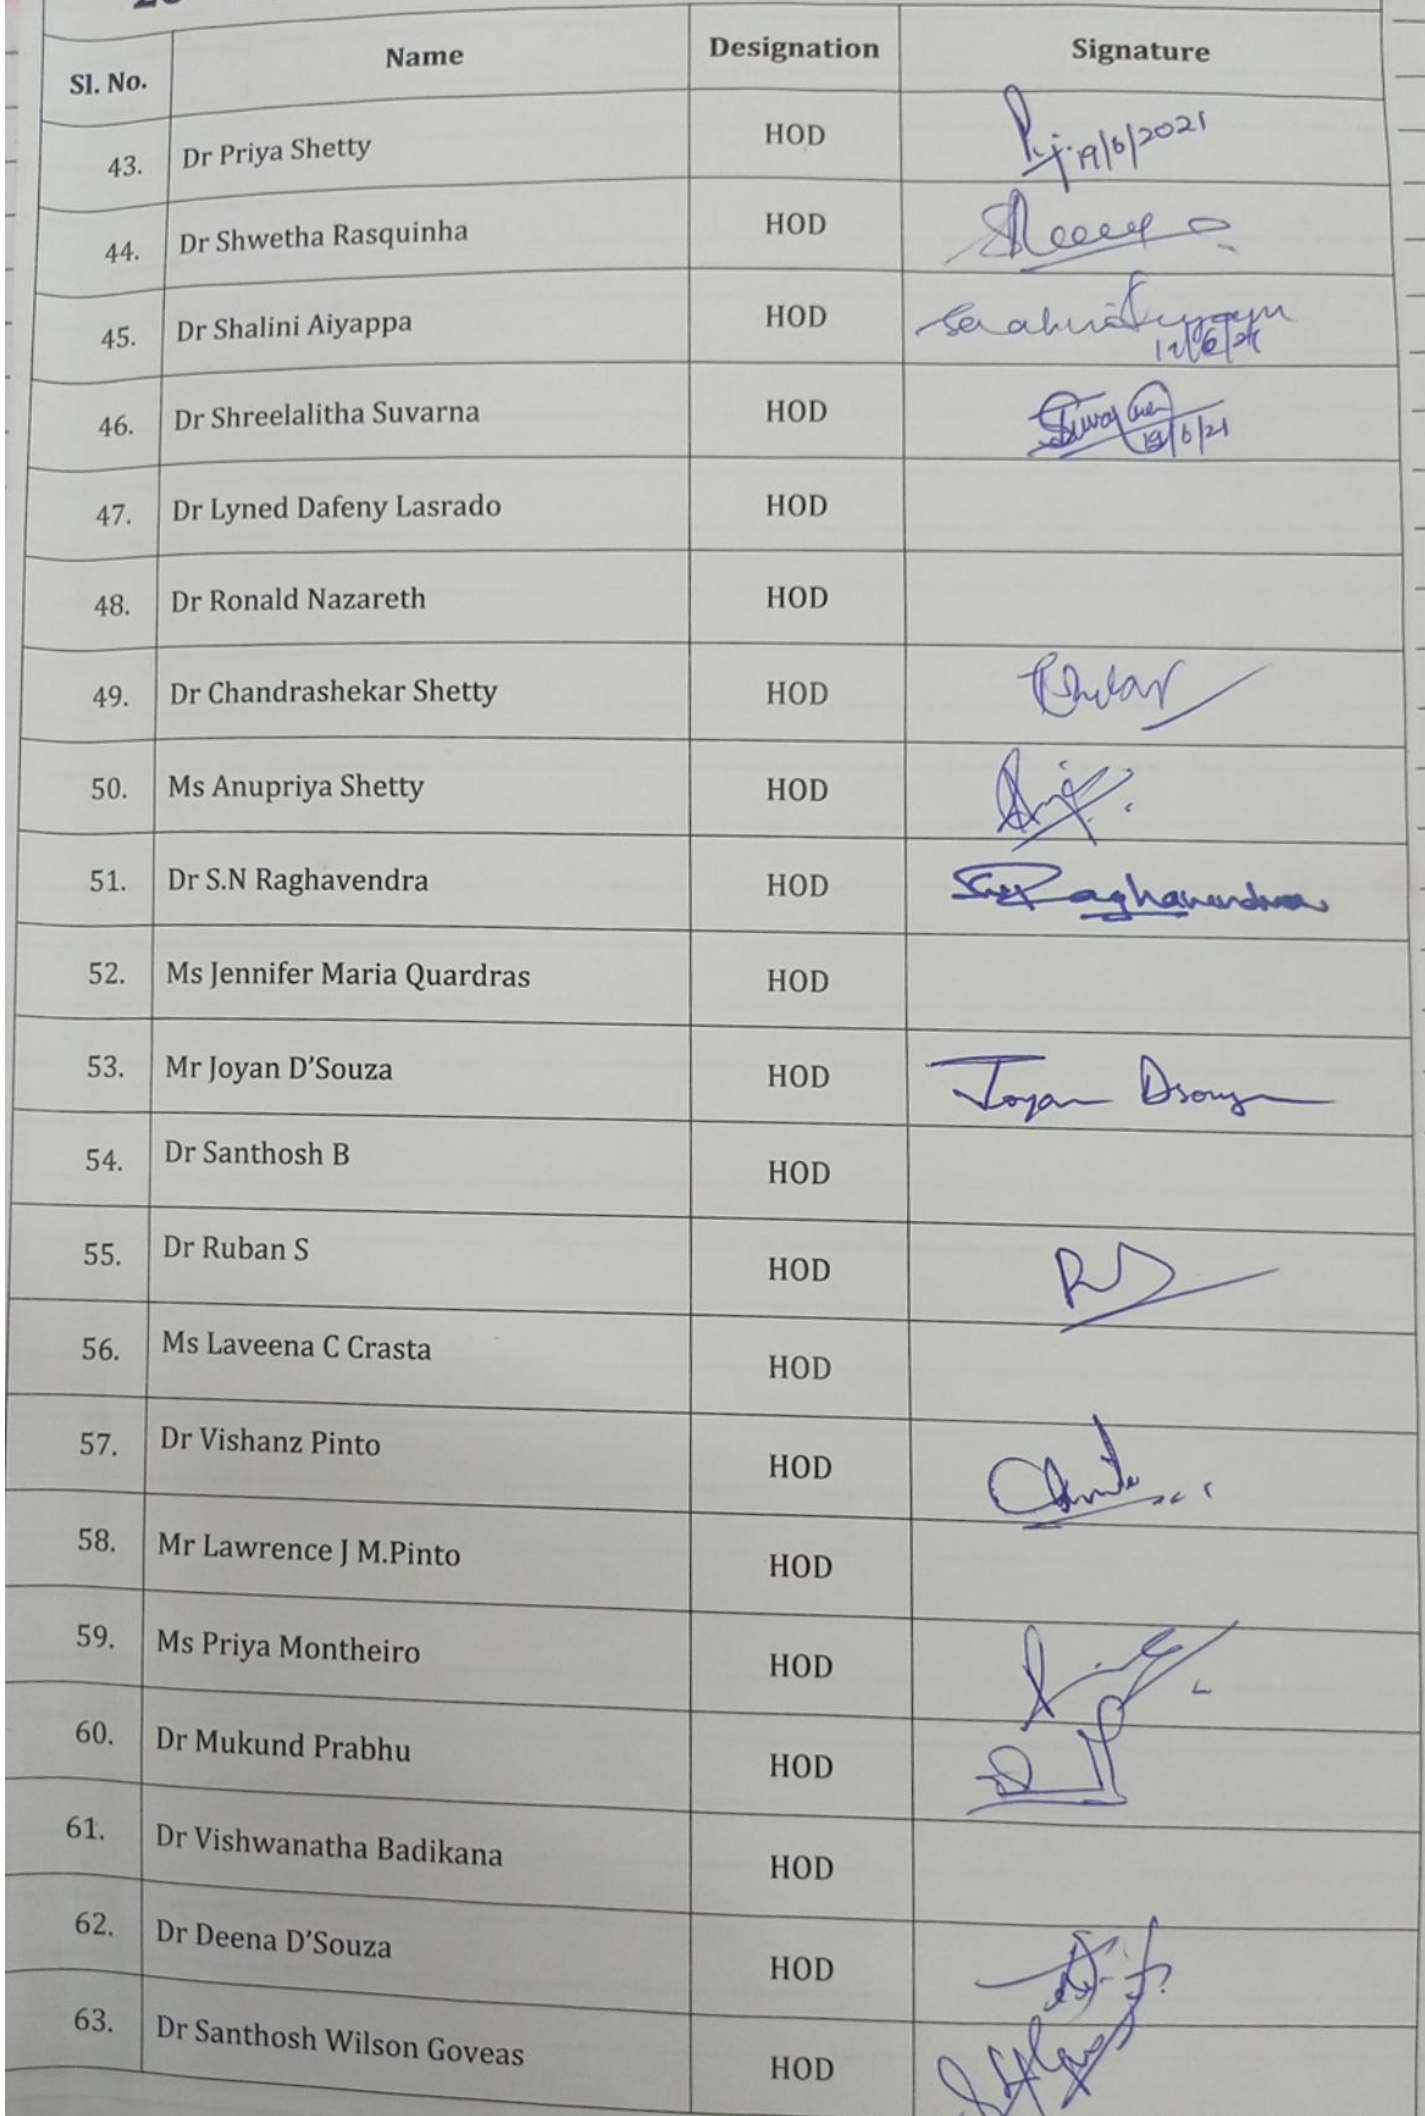 Sl. No. Name Designation Signature
43. Dr Priya Shetty HOD 19/6/2021
44. Dr Shwetha Rasquinha HOD
45. Dr Shalini Aiyappa HOD
46. Dr Shreelalitha Suvarna HOD 19/6/21
47. Dr Lyned Dafeny Lasrado HOD
48. Dr Ronald Nazareth HOD
49. Dr Chandrashekar Shetty HOD
50. Ms Anupriya Shetty HOD
51. Dr S.N Raghavendra HOD Raghavendra
52. Ms Jennifer Maria Quardras HOD
53. Mr Joyan D'Souza HOD Joyan Dsouza
54. Dr Santhosh B HOD
55. Dr Ruban S HOD
56. Ms Laveena C Crasta HOD
57. Dr Vishanz Pinto HOD
58. Mr Lawrence J M.Pinto HOD
59. Ms Priya Montheiro HOD
60. Dr Mukund Prabhu HOD
61. Dr Vishwanatha Badikana HOD
62. Dr Deena D'Souza HOD
63. Dr Santhosh Wilson Goveas HOD